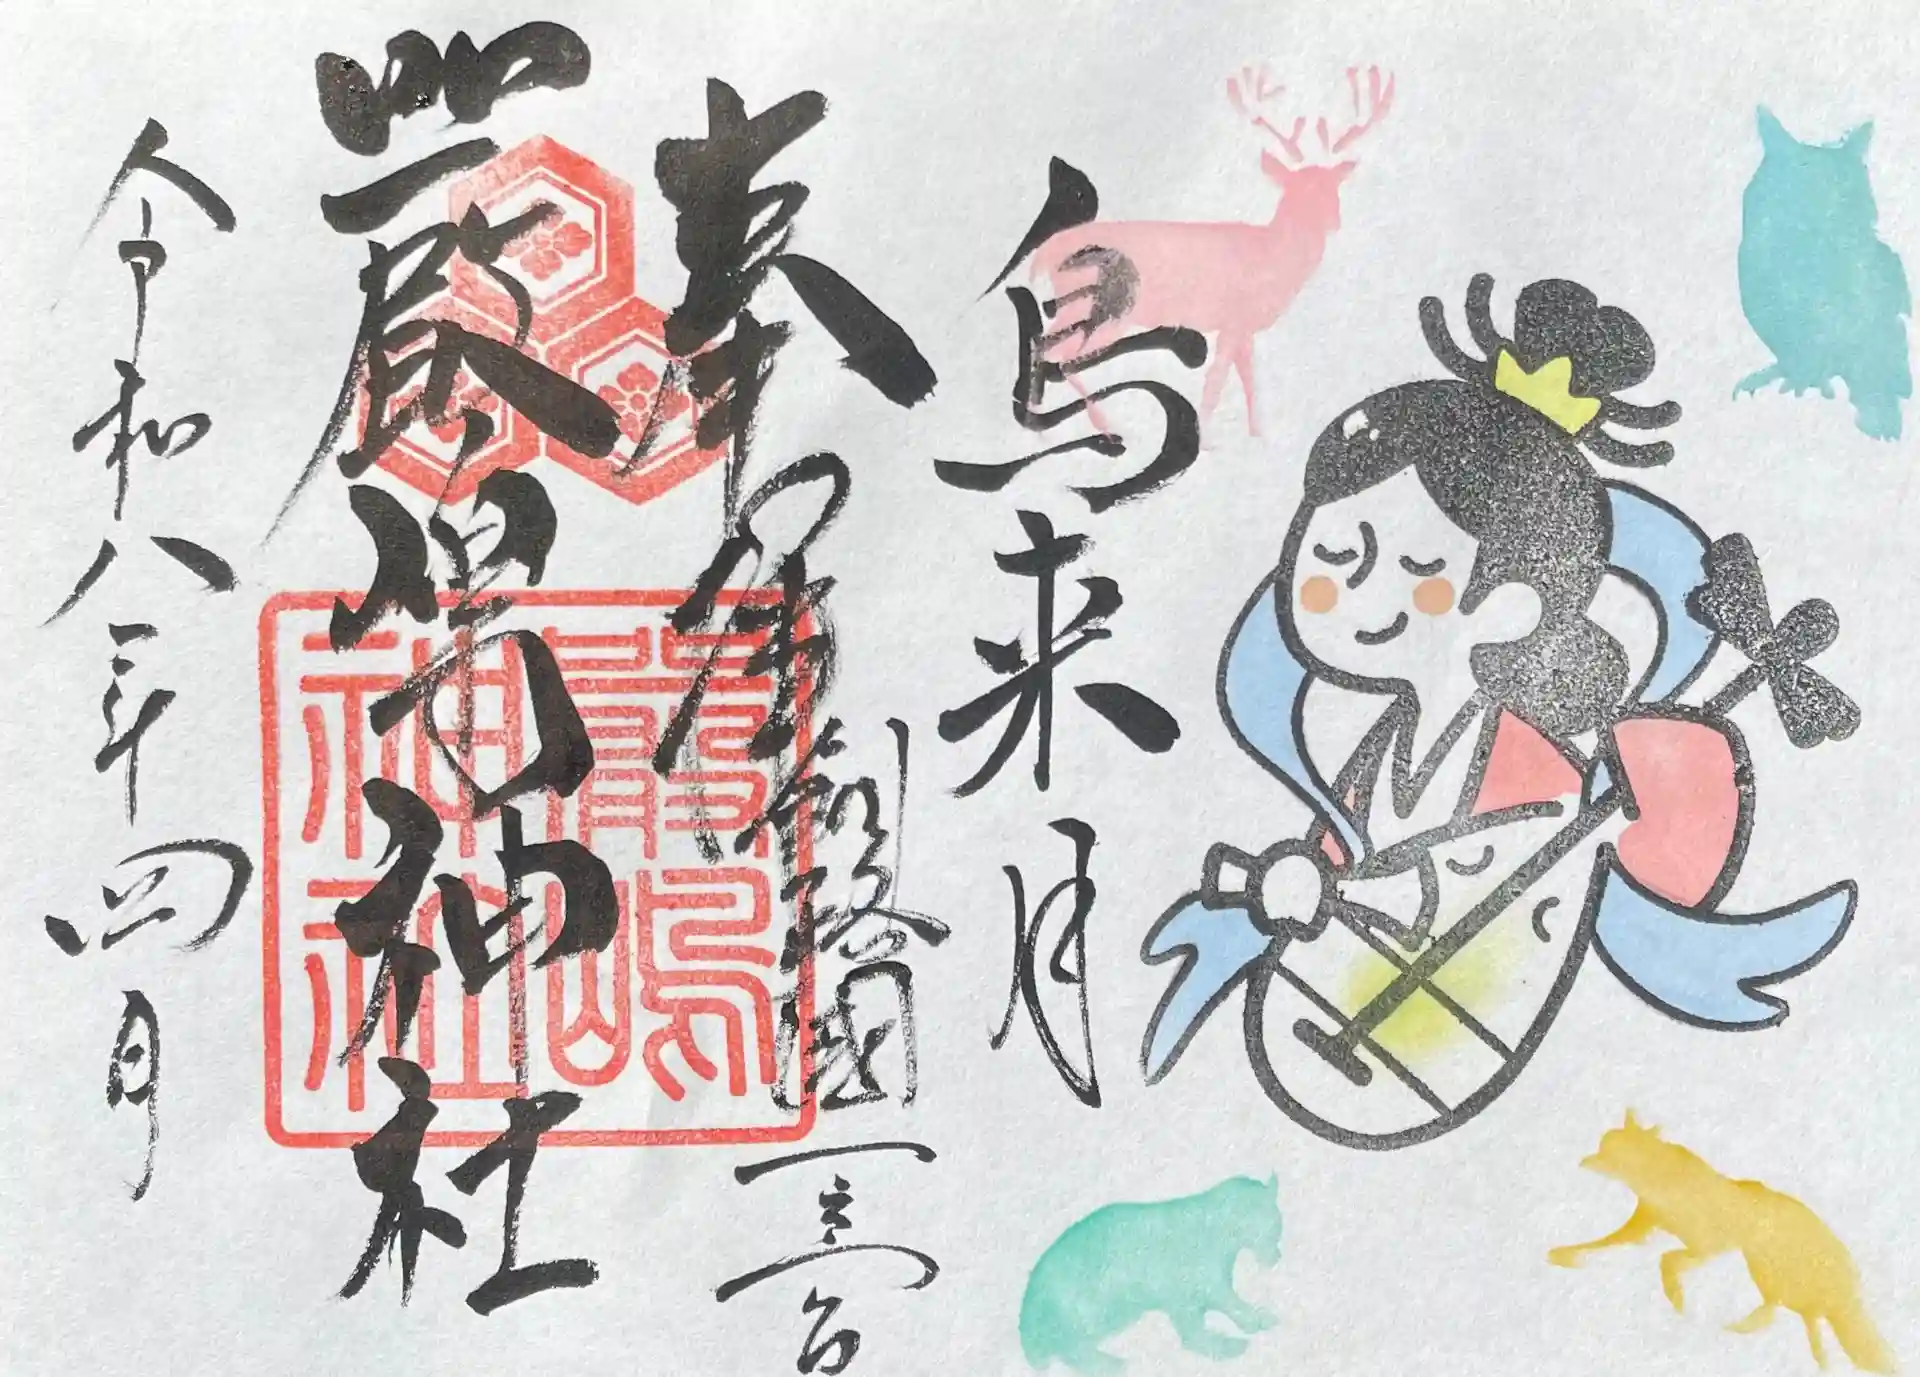 鳥来月
奉拝
釧路國一之宮
嚴嶋神社
嚴嶋
神社
令和八年四月